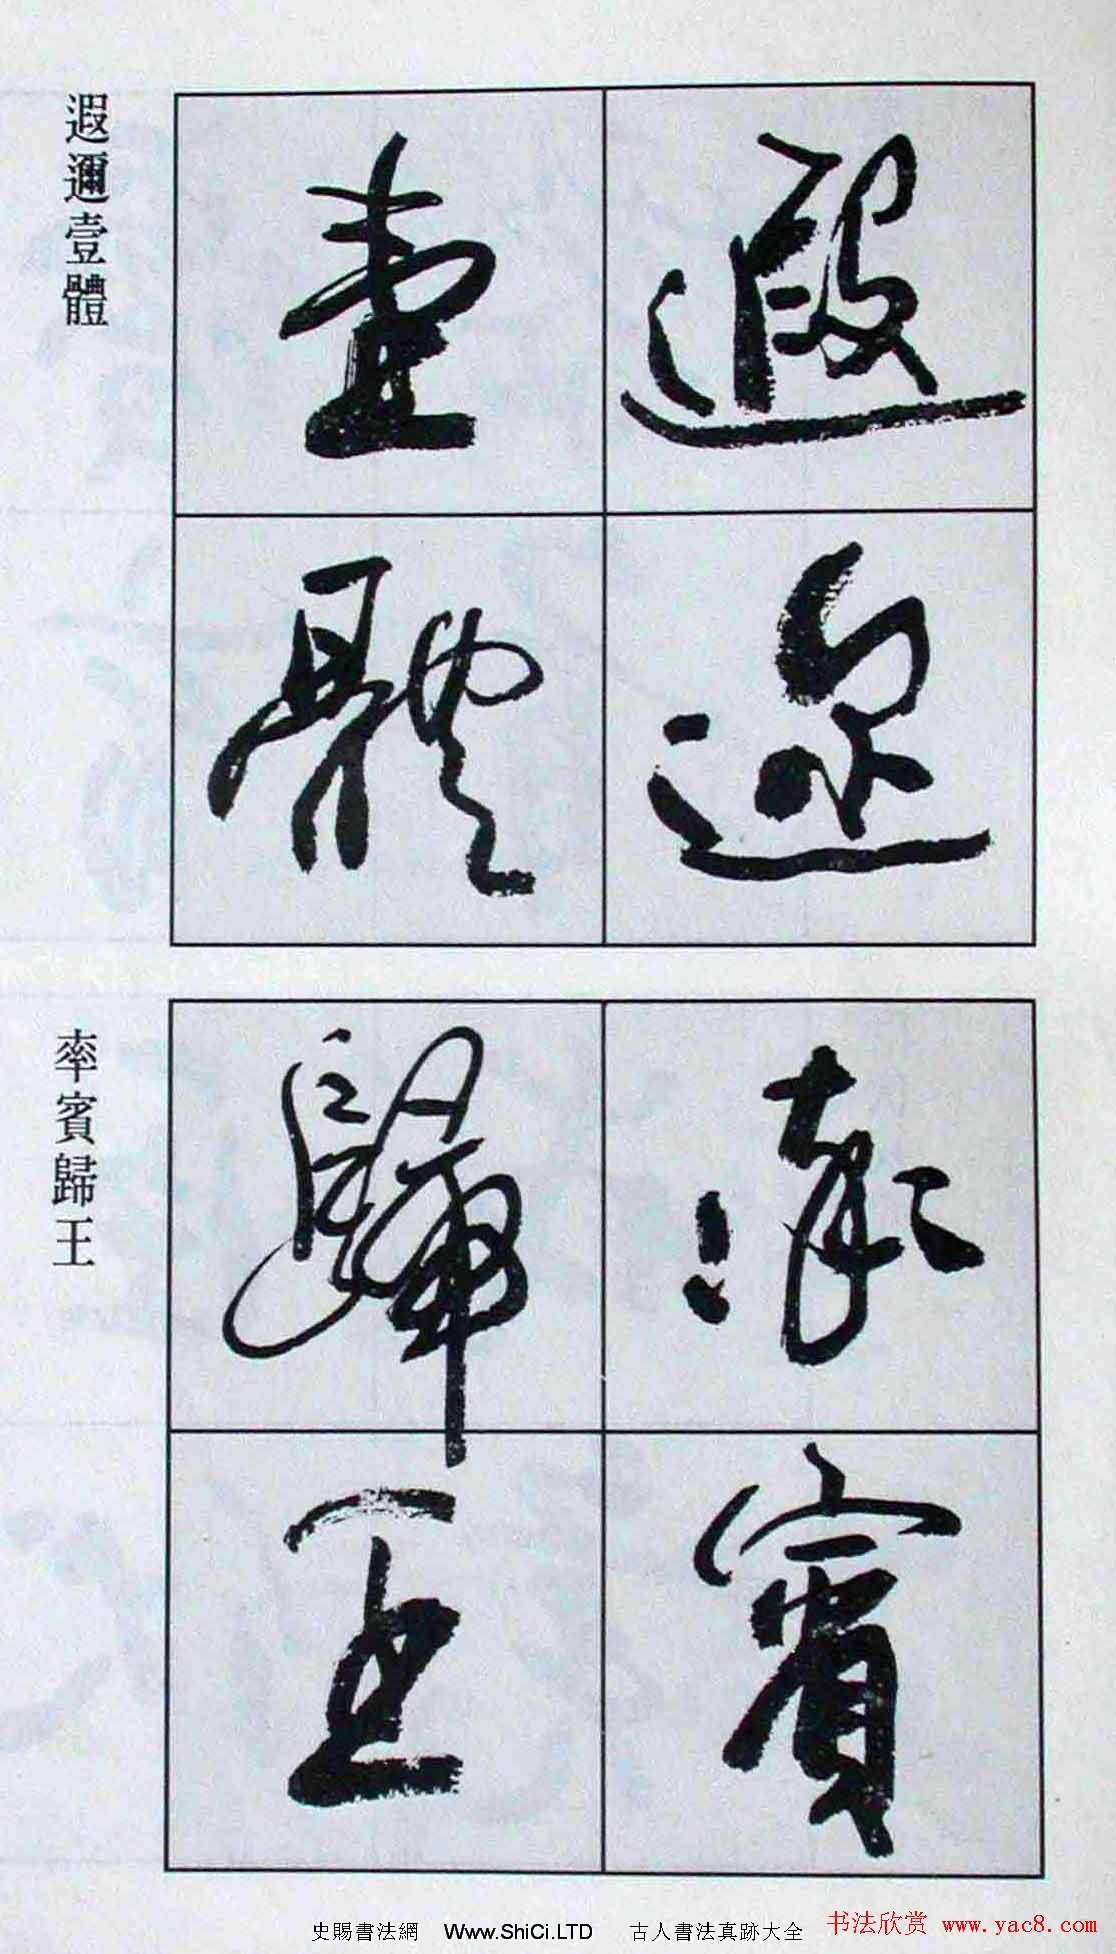 遐邇壹體
遐邇
壹體
率賓歸王
率賓
歸王
史賜書法網 Www.ShiCi.LTD 古人書法真跡大全
书法欣赏 www.yac8.com